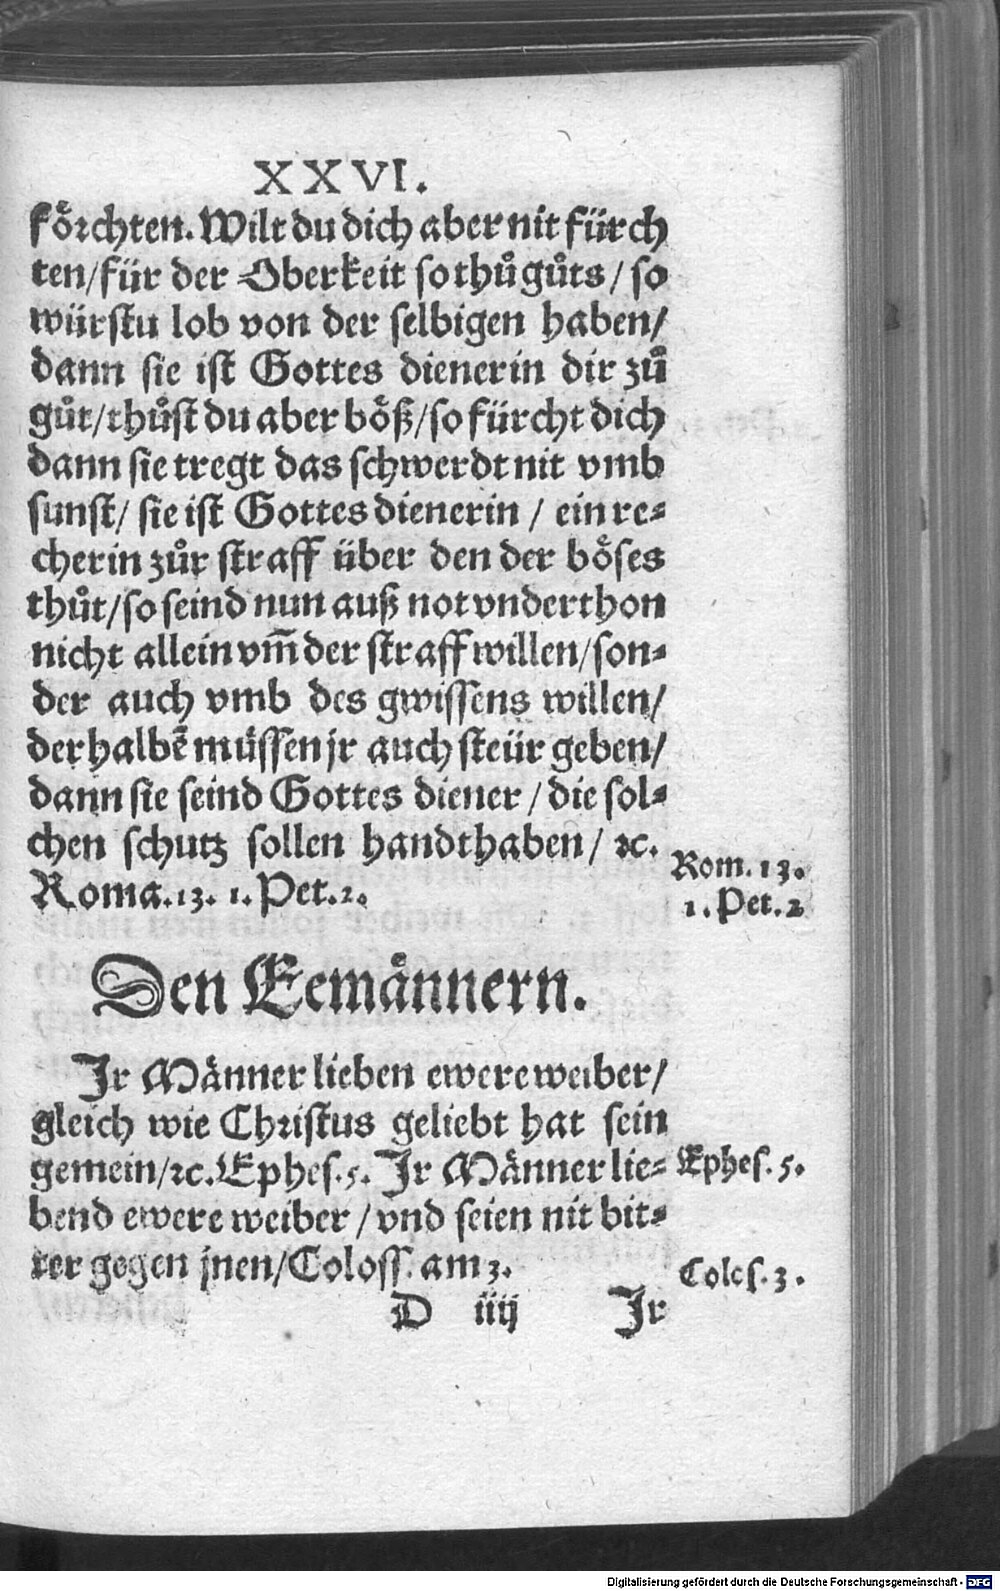 XXVI.
förchten. Wilt du dich aber nit fürch
ten/für der Oberkeit so thůgůts/so
würstu lob von der selbigen haben/
dann sie ist Gottes dienerin dir zů
gůt/thůst du aber böß/so fürcht dich
dann sie tregt das schwerdt nit vmb
sunst/ sie ist Gottes dienerin / ein re⸗
cherin zůr straff über den der böses
thůt/so seind nun auß not vnderthon
nicht allein vm̄ der straff willen/son⸗
der auch vmb des gwissens willen/
derhalbē müssen jr auch steür geben/
dann sie seind Gottes diener / die sol⸗
chen schutz sollen handthaben/ ꝛc.
Roma.13. 1. Pet.2.
Rom. 13.
1. Pet. 2
Den Eemånnern.
Jr Månner lieben ewere weiber/
gleich wie Christus geliebt hat sein
gemein/ꝛc. Ephes.5. Jr Månner lie⸗
Ephes. 5.
bend ewere weiber / vnd seien nit bit⸗
ter gegen jnen/Coloss. am 3.
Colos. 3.
D iiij Jr
Digitalisierung gefördert durch die Deutsche Forschungsgemeinschaft - DFG